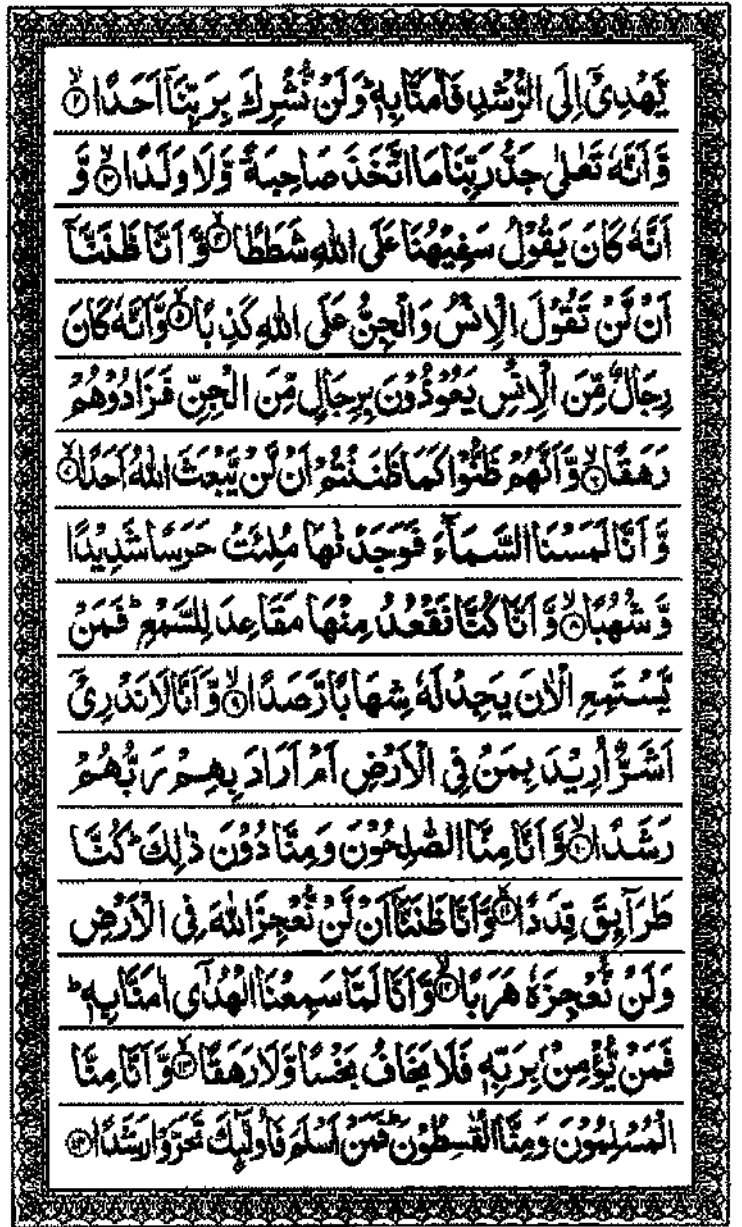 يَّهْدِىْۤ اِلَى الرُّشْدِ فَاٰمَنَّا بِهٖ ؕ وَلَنْ نُّشْرِكَ بِرَبِّنَاۤ اَحَدًا ۙ‏﴿۲﴾
وَّاَنَّهٗ تَعٰلٰى جَدُّ رَبِّنَا مَا اتَّخَذَ صَاحِبَةً وَّلَا وَلَدًا ۙ‏﴿۳﴾ وَّ
اَنَّهٗ كَانَ يَقُوْلُ سَفِيْهُنَا عَلَى اللّٰهِ شَطَطًا ۙ‏﴿۴﴾ وَّاَنَّا ظَنَنَّاۤ
اَنْ لَّنْ تَقُوْلَ الْاِنْسُ وَالْجِنُّ عَلَى اللّٰهِ كَذِبًا ۙ‏﴿۵﴾ وَّاَنَّهٗ كَانَ
رِجَالٌ مِّنَ الْاِنْسِ يَعُوْذُوْنَ بِرِجَالٍ مِّنَ الْجِنِّ فَزَادُوْهُمْ
رَهَقًا ۙ‏﴿۶﴾ وَّاَنَّهُمْ ظَنُّوْا كَمَا ظَنَنْتُمْ اَنْ لَّنْ يَّبْعَثَ اللّٰهُ اَحَدًا ۙ‏﴿۷﴾
وَّاَنَّا لَمَسْنَا السَّمَآءَ فَوَجَدْنٰهَا مُلِئَتْ حَرَسًا شَدِيْدًا
وَّشُهُبًا ۙ‏﴿۸﴾ وَّاَنَّا كُنَّا نَقْعُدُ مِنْهَا مَقَاعِدَ لِلسَّمْعِ ؕ فَمَنْ
يَّسْتَمِعِ الْاٰنَ يَجِدْ لَهٗ شِهَابًا رَّصَدًا ۙ‏﴿۹﴾ وَّاَنَّا لَا نَدْرِىْۤ
اَشَرٌّ اُرِيْدَ بِمَنْ فِى الْاَرْضِ اَمْ اَرَادَ بِهِمْ رَبُّهُمْ
رَشَدًا ۙ‏﴿۱۰﴾ وَّاَنَّا مِنَّا الصّٰلِحُوْنَ وَمِنَّا دُوْنَ ذٰلِكَ ؕ كُنَّا
طَرَآئِقَ قِدَدًا ۙ‏﴿۱۱﴾ وَّاَنَّا ظَنَنَّاۤ اَنْ لَّنْ نُّعْجِزَ اللّٰهَ فِى الْاَرْضِ
وَلَنْ نُّعْجِزَهٗ هَرَبًا ۙ‏﴿۱۲﴾ وَّاَنَّا لَمَّا سَمِعْنَا الْهُدٰٓى اٰمَنَّا بِهٖ ؕ
فَمَنْ يُّؤْمِنْۢ بِرَبِّهٖ فَلَا يَخَافُ بَخْسًا وَّلَا رَهَقًا ۙ‏﴿۱۳﴾ وَّاَنَّا مِنَّا
الْمُسْلِمُوْنَ وَمِنَّا الْقٰسِطُوْنَ ؕ فَمَنْ اَسْلَمَ فَاُولٰٓئِكَ تَحَرَّوْا رَشَدًا‏﴿۱۴﴾